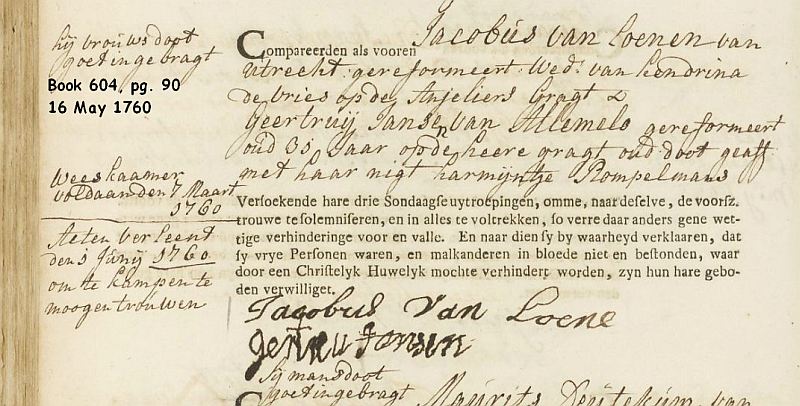 hij vrouws doot
goet ingebragt
Book 604, pg. 90
16 May 1760
Weeskaamer
voldaan den 7 Maart
1760
Acten verleent
den 1 Junij 1760
om te kampen te
moogen trouwen
Compareerden als vooren Jacobus van Loenen van
utrecht gereformeert Wedr. van hendrina
de vries op de Anjeliers gragt &
Geertruij Jansen van Allemelo gereformeert
oud 35 Jaar op de heere gragt oud doot geaff
met haar nigt harmijntje Rompelmans
Versoekende hare drie Sondaagse uytroepingen, omme, naar deselve, de voorsz.
trouwe te solemniseren, en in alles te voltrekken, so verre daar anders gene wet-
tige verhinderinge voor en valle. En naar dien sy by waarheyd verklaaren, dat
sy vrye Personen waren, en malkanderen in bloede niet en bestonden, waar
door een Christelyk Huwelyk mochte verhindert worden, zyn hun hare gebo-
den verwilliget.
Jacobus Van Loene
Jansen
hij mans doot
goet ingebragt
Maurits van